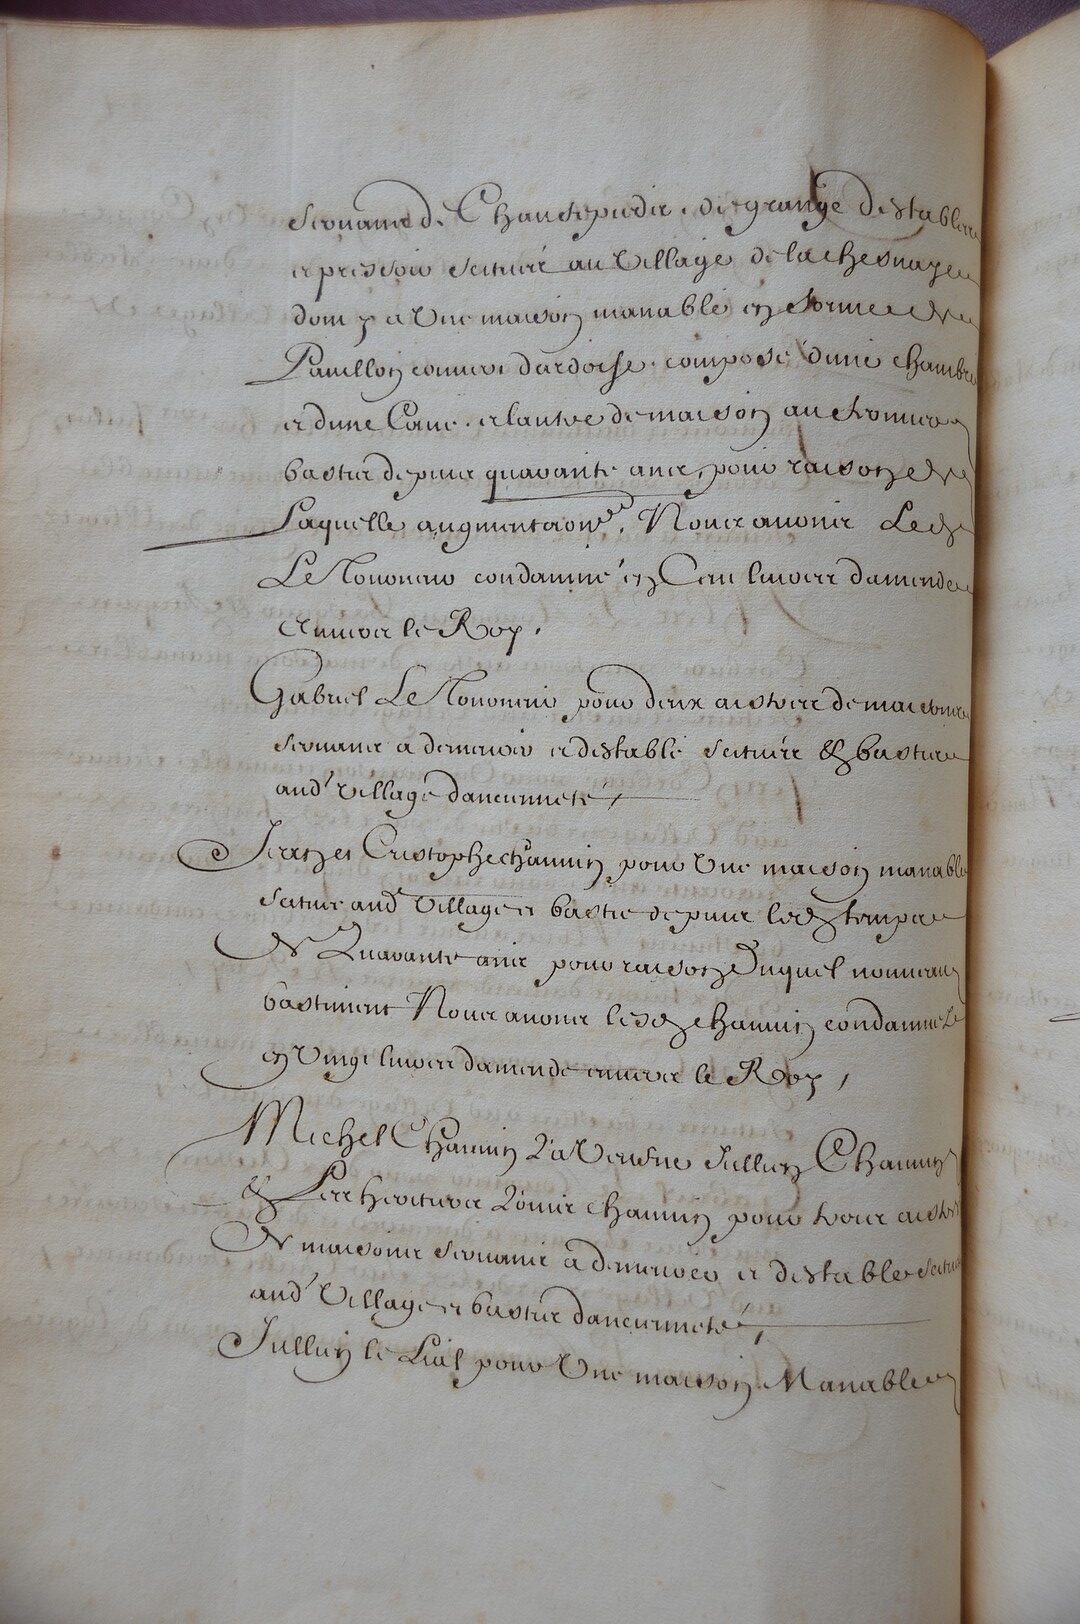 servants de Chaude piedir, de grange destables
et pressoir scitués au Village de la chesnaye
dont y a Une maison manable en forme de
Pavillon couvert d'ardoise composé d'une chambre
et d'une Cave et lautre de maison au fournier
basties depuis quarante ans, pour raison de
Laquelle augmentation, Nous avons Led
Le Tououero condamné en Cent livres damende
envers le Roy.
Gabriel Le Tououero pour deux aistres de maisons
servants a demeurer et destable scitués & basties
aud Village dancienneté
Jean et Cristophe Channin pour Une maison manable
scituee aud Village et bastie depuis led temps
de Quarante ans pour raison Duquel nouveau
bastiment Nous avons lesd Channin condamnés
en Vingt livres damende envers le Roy,
Michel Channin La Veufve Jullien Channin
& Les heritiers Louis Channin pour trois aistres
de maisons servants a demeurer et destable scitués
aud Village et basties dancienneté,
Jullien le Lial pour Une maison Manable